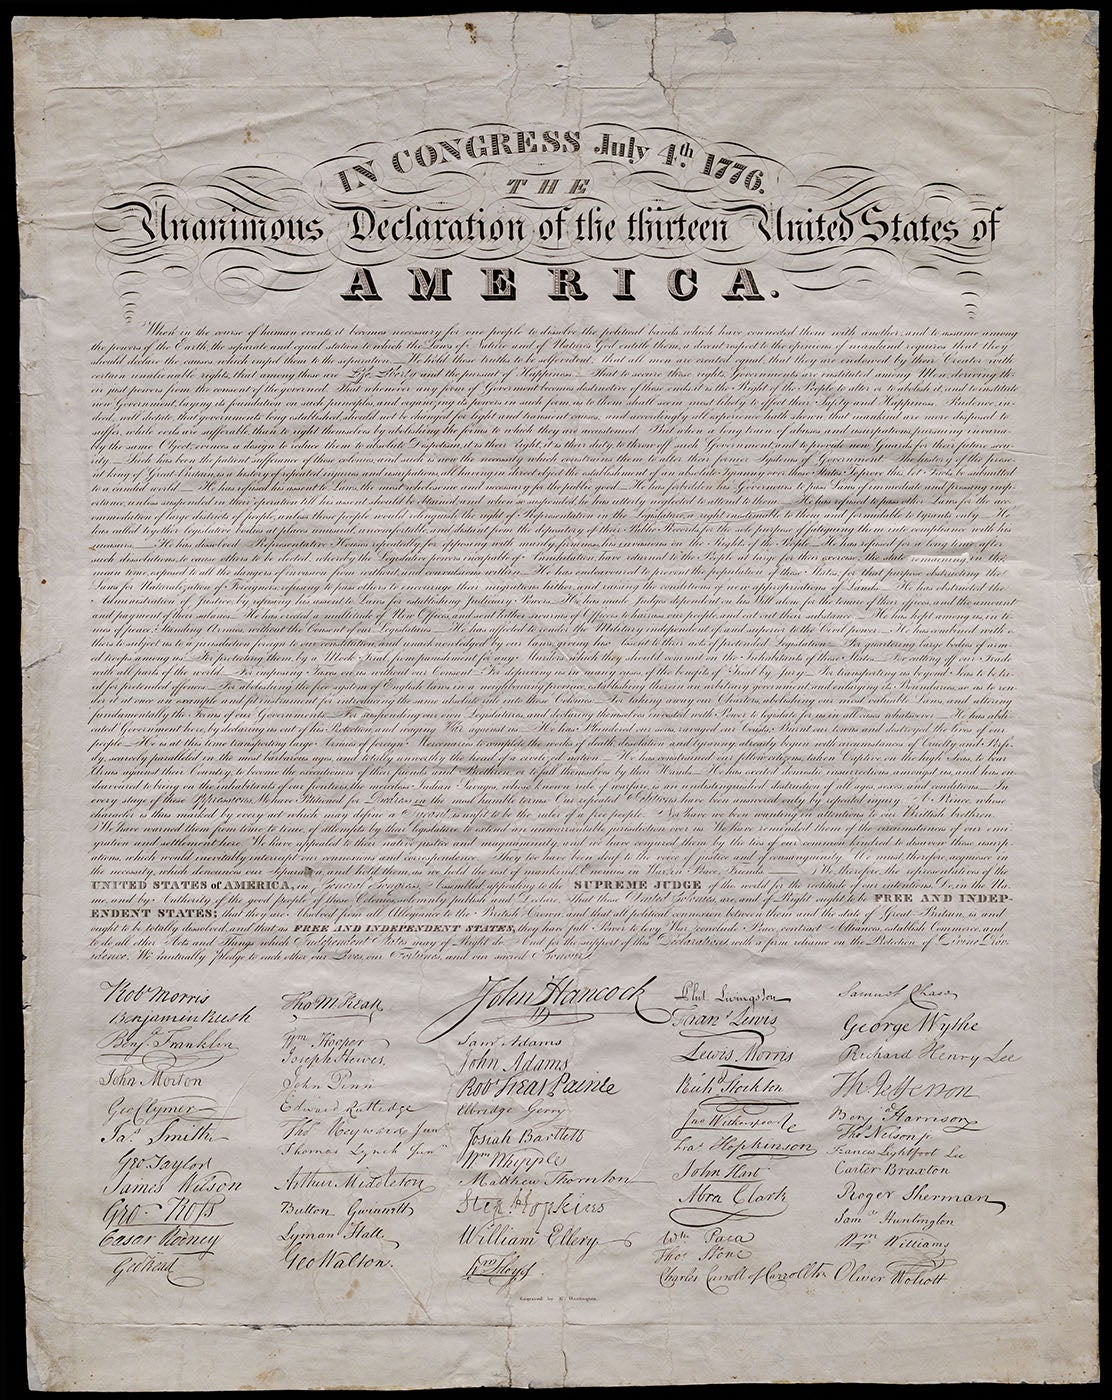 IN CONGRESS July 4th. 1776.
THE
Unanimous Declaration of the thirteen United States of
AMERICA.
When in the course of human events, it becomes necessary for one people to dissolve the political bands which have connected them with another, and to assume among
the powers of the Earth, the separate and equal station to which the Laws of Nature and of Nature's God entitle them, a decent respect to the opinions of mankind requires that they
should declare the causes which impel them to the separation.— We hold these truths to be self evident, that all men are created equal, that they are endowed by their Creator with
certain unalienable rights, that among these are Life, Liberty and the pursuit of Happiness.— That to secure these rights, Governments are instituted among Men, deriving the-
ir just powers from the consent of the governed. That whenever any form of Government becomes destructive of these ends, it is the Right of the People to alter or to abolish it, and to institute
new Government, laying its foundation on such principles, and organizing its powers in such form, as to them shall seem most likely to effect their Safety and Happiness. Prudence, in-
deed, will dictate, that governments long established, should not be changed for light and transient causes, and accordingly all experience hath shewn that mankind are more disposed to
suffer, while evils are sufferable, than to right themselves by abolishing the forms to which they are accustomed. But when a long train of abuses, and usurpations, pursuing invaria-
bly the same Object, evinces a design to reduce them to absolute Despotism, it is their Right, it is their duty to throw off such Government, and to provide new Guards for their future secu-
rity.— Such has been the patient sufferance of these colonies, and such is now the necessity which constrains them to alter their former Systems of Government. The history of the prese-
nt king of Great-Britain is a history of repeated injuries and usurpations, all having in direct object the establishment of an absolute Tyranny over these States. To prove this, let Facts be submitted
to a candid world.— He has refused his assent to Laws, the most wholesome and necessary for the public good.— He has forbidden his Governours to pass Laws of immediate and pressing imp-
ortance, unless suspended in their operation till his assent should be obtained, and when so suspended, he has utterly neglected to attend to them.— He has refused to pass other Laws for the acc-
ommodation of large districts of people, unless those people would relinquish the right of Representation in the Legislature, a right inestimable to them, and formidable to tyrants only.— He
has called together legislative bodies at places unusual, uncomfortable, and distant from the depository of their Public Records, for the sole purpose of fatiguing them into compliance with his
measures.— He has dissolved Representative Houses repeatedly, for opposing with manly firmness, his invasions on the Rights of the People.— He has refused for a long time, after
such dissolutions, to cause others to be erected, whereby the Legislative powers, incapable of Annihilation, have returned to the People at large for their exercise, the state remaining in the
mean time exposed to all the dangers of invasion from without, and convulsions within.— He has endeavoured to prevent the population of these States, for that purpose obstructing the
Laws for Naturalization of Foreigners, refusing to pass others to encourage their migration hither, and raising the conditions of new appropriations of Lands.— He has obstructed the
Administration of Justice, by refusing his assent to Laws for establishing Judiciary Powers.— He has made Judges dependent on his Will alone for the tenure of their offices, and the amount
and payment of their salaries.— He has erected a multitude of New Offices, and sent hither swarms of Officers to harrass our people, and eat out their substance.— He has kept among us, in ti-
mes of peace, Standing Armies, without the Consent of our Legislatures.— He has affected to render the Military independent of, and superior to the Civil power.— He has combined with o-
thers to subject us to a jurisdiction foreign to our constitution, and unacknowledged by our laws, giving his Assent to their acts of pretended Legislation.— For quartering large bodies of arm-
ed troops among us.— For protecting them, by a Mock-Trial, from punishment for any Murders which they should commit on the Inhabitants of these States.— For cutting off our Trade
with all parts of the world.— For imposing Taxes on us without our Consent.— For depriving us in many cases, of the benefits of Trial by Jury.— For transporting us beyond Seas to be tri-
ed for pretended offences.— For abolishing the free system of English laws in a neighbouring province, establishing therein an arbitrary government, and enlarging its Boundaries, so as to ren-
der it at once an example and fit instrument for introducing the same absolute rule into these Colonies.— For taking away our Charters, abolishing our most valuable Laws, and altering
fundamentally the Forms of our Governments.— For suspending our own Legislatures, and declaring themselves invested with Power to legislate for us in all cases whatsoever.— He has abdi-
cated Government here, by declaring us out of his Protection, and waging War against us.— He has Plundered our seas, ravaged our Coasts, Burnt our towns and destroyed the lives of our
people.— He is at this time transporting large Armies of foreign Mercenaries to complete the works of death, desolation and tyranny, already begun with circumstances of Cruelty and Perfi-
dy, scarcely paralleled in the most barbarous ages, and totally unworthy the head of a civilized nation.— He has constrained our fellow citizens taken Captive on the high Seas, to bear
Arms against their Country, to become the executioners of their friends and Brethren, or to fall themselves by their Hands.— He has excited domestic insurrections amongst us, and has en-
deavoured to bring on the inhabitants of our frontiers, the merciless Indian Savages, whose known rule of warfare, is an undistinguished destruction of all ages, sexes, and conditions.— In
every stage of these Oppressions, We have Petitioned for Redress, in the most humble terms. Our repeated Petitions have been answered only by repeated injury. A Prince, whose
character is thus marked by every act which may define a Tyrant, is unfit to be the ruler of a free people. Nor have we been wanting in attentions to our Brittish brethren.
We have warned them from time to time, of attempts by their legislature to extend an unwarrantable jurisdiction over us. We have reminded them of the circumstances of our emi-
gration and settlement here. We have appealed to their native justice and magnanimity, and we have conjured them by the ties of our common kindred to disavow these usurp-
ations, which would inevitably interrupt our connexions and correspondence. They too have been deaf to the voice of justice and of consanguinity. We must, therefore, acquiesce in
the necessity, which denounces our Separation, and hold them, as we hold the rest of mankind, Enemies in War, in Peace, Friends.— We, therefore, the representatives of the
UNITED STATES of AMERICA, in General Congress, Assembled, appealing to the SUPREME JUDGE of the world for the rectitude of our intentions, Do, in the Na-
me, and by Authority of the good people of these Colonies, solemnly publish and Declare, That these United Colonies, are, and of Right ought to be FREE AND INDEP-
ENDENT STATES; that they are Absolved from all Allegiance to the British Crown, and that all political connexion between them and the state of Great-Britain, is and
ought to be totally dissolved, and that as FREE AND INDEPENDENT STATES, they have full Power to levy War, conclude Peace, contract Alliances, establish Commerce, and
to do all other Acts and Things which Independent States may of Right do. And for the support of this Declaration, with a firm reliance on the Protection of Divine Prov-
idence, We mutually Pledge to each other our Lives, our Fortunes, and our sacred Honour.
Robt. Morris
Benjamin Rush
Benja. Franklin
John Morton
Geo Clymer
Jas. Smith
Geo. Taylor
James Wilson
Geo. Ross
Caesar Rodney
Geo Read
Tho M:Kean
Wm Hooper
Joseph Hewes,
John Penn
Edward Rutledge
Thos. Heyward Junr.
Thomas Lynch Junr.
Arthur Middleton
Button Gwinnett
Lyman Hall
Geo Walton.
John Hancock
Saml. Adams
John Adams
Robt Treat Paine
Elbridge Gerry
Josiah Bartlett
Wm Whipple
Matthew Thornton
Step. Hopkins
William Ellery
Wm Floyd
Phil. Livingston
Frans. Lewis
Lewis Morris
Richd. Stockton
Jno Witherspoon
Fras. Hopkinson
John Hart
Abra Clark
Wm Paca
Thos. Stone
Charles Carroll of Carrollton
Samuel Chase
George Wythe
Richard Henry Lee
Th Jefferson
Benja. Harrison
Thos. Nelson jr.
Francis Lightfoot Lee
Carter Braxton
Roger Sherman
Saml. Huntington
Wm Williams
Oliver Wolcott
Engraved by E. Huntington.